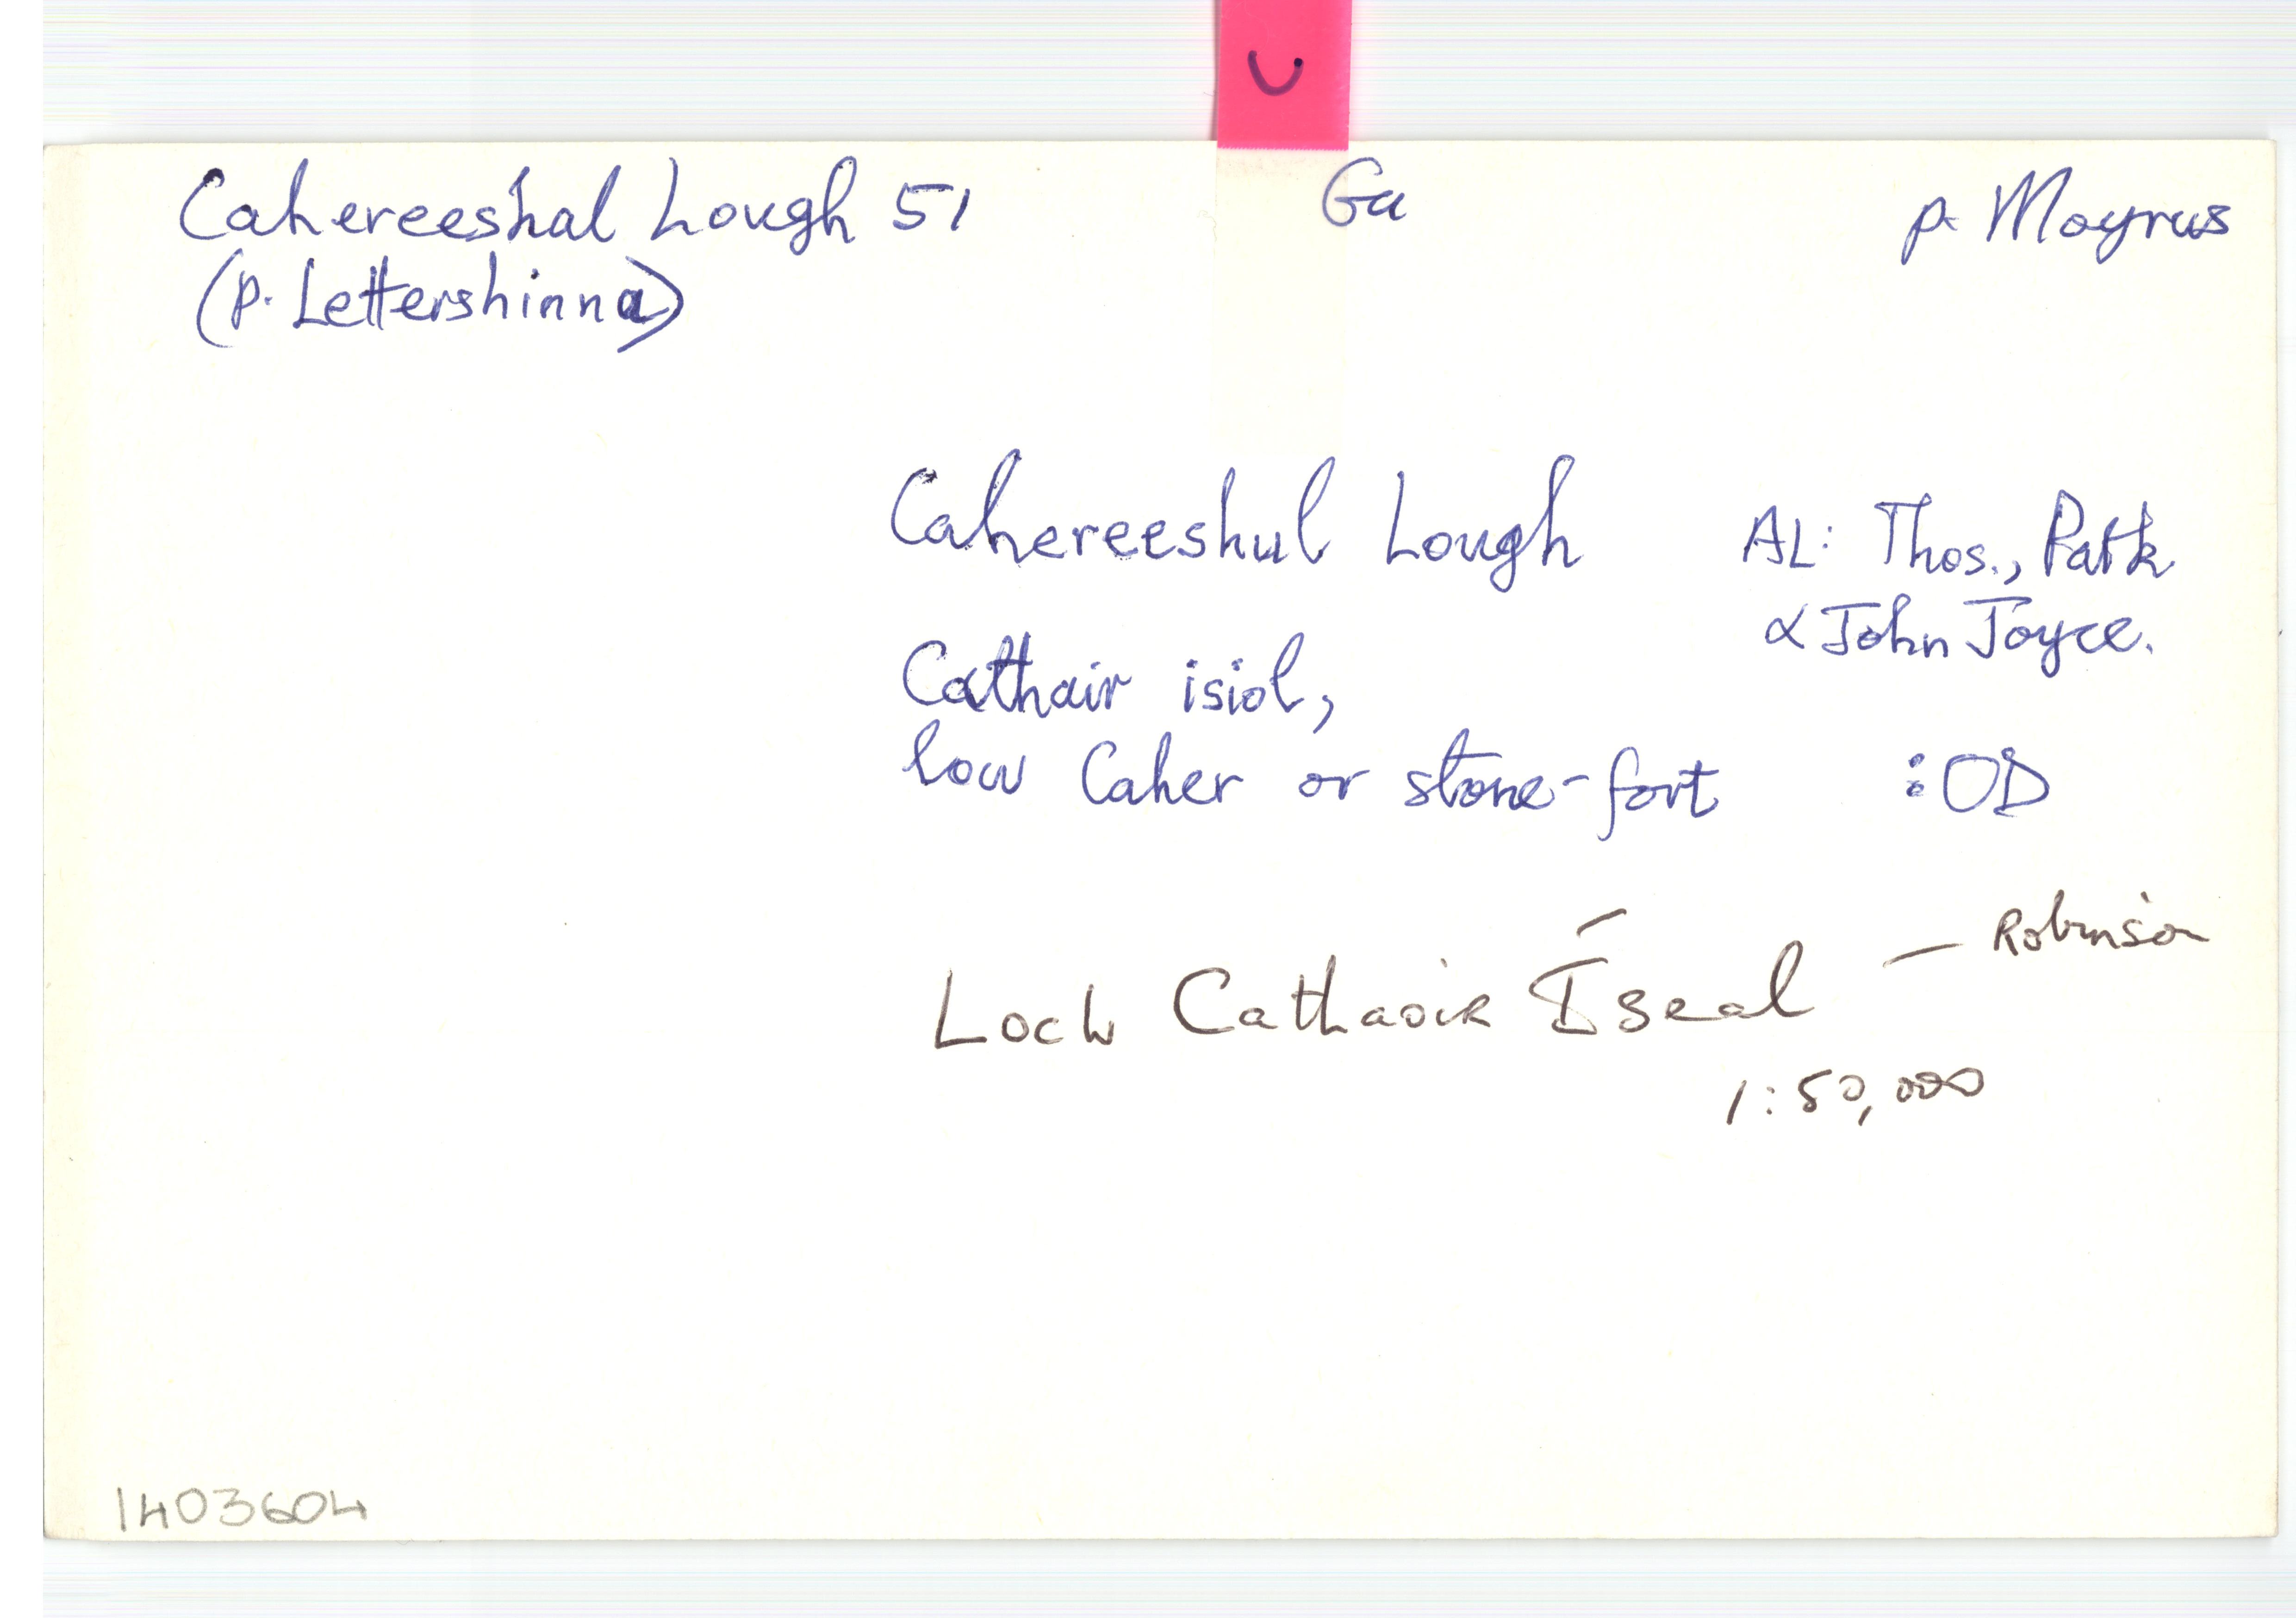 Cahereeshal Lough 51 Ga p. Moyrus
(p. Lettershinna)
Cahereeshul Lough AL: Thos., Patk
& John Joyce.
Cathair isiol,
low Caher or stone-fort :OD
Loch Cathaoir Íseal — Robinson
1:50,000
1403604